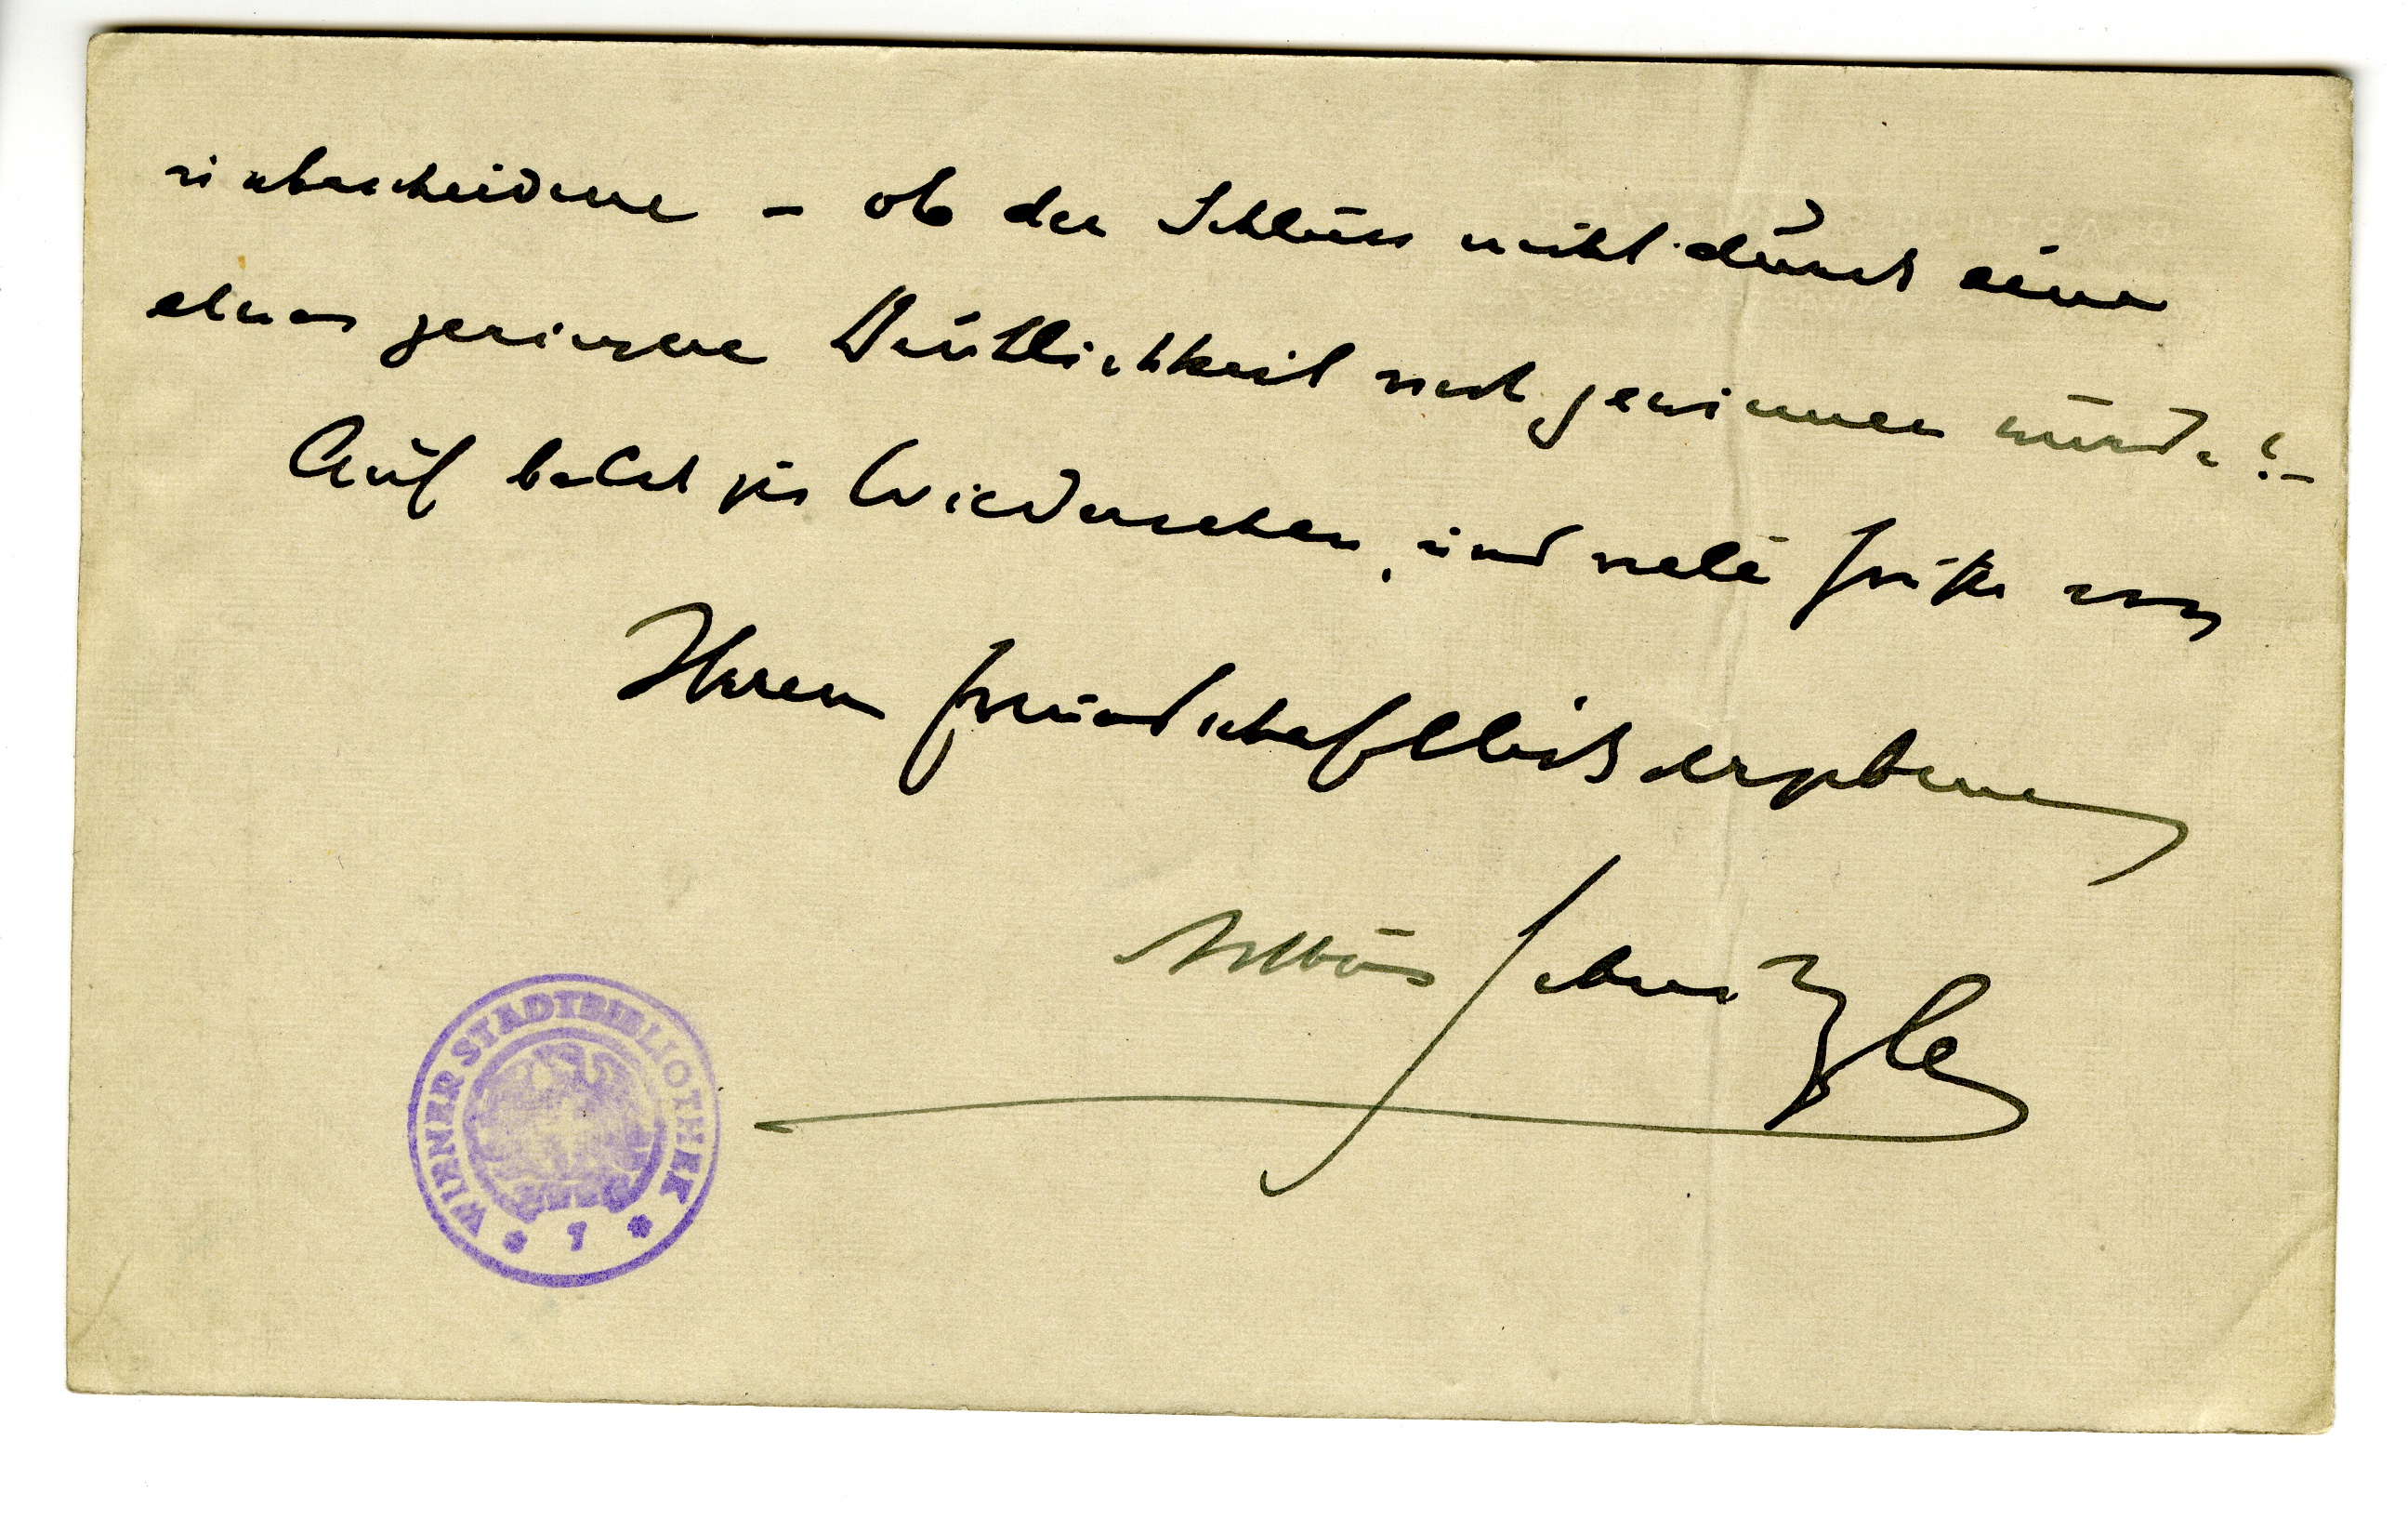 unbescheidene – ob der Schluss nicht durch eine
etwas geringere Deutlichkeit noch gewinnen würde? –
Auf baldiges Wiedersehen, und viele Grüße von
Ihrem freundschaftlich ergebenen
Arthur Schnitzler
WIENER STADTBIBLIOTHEK
* 7 *